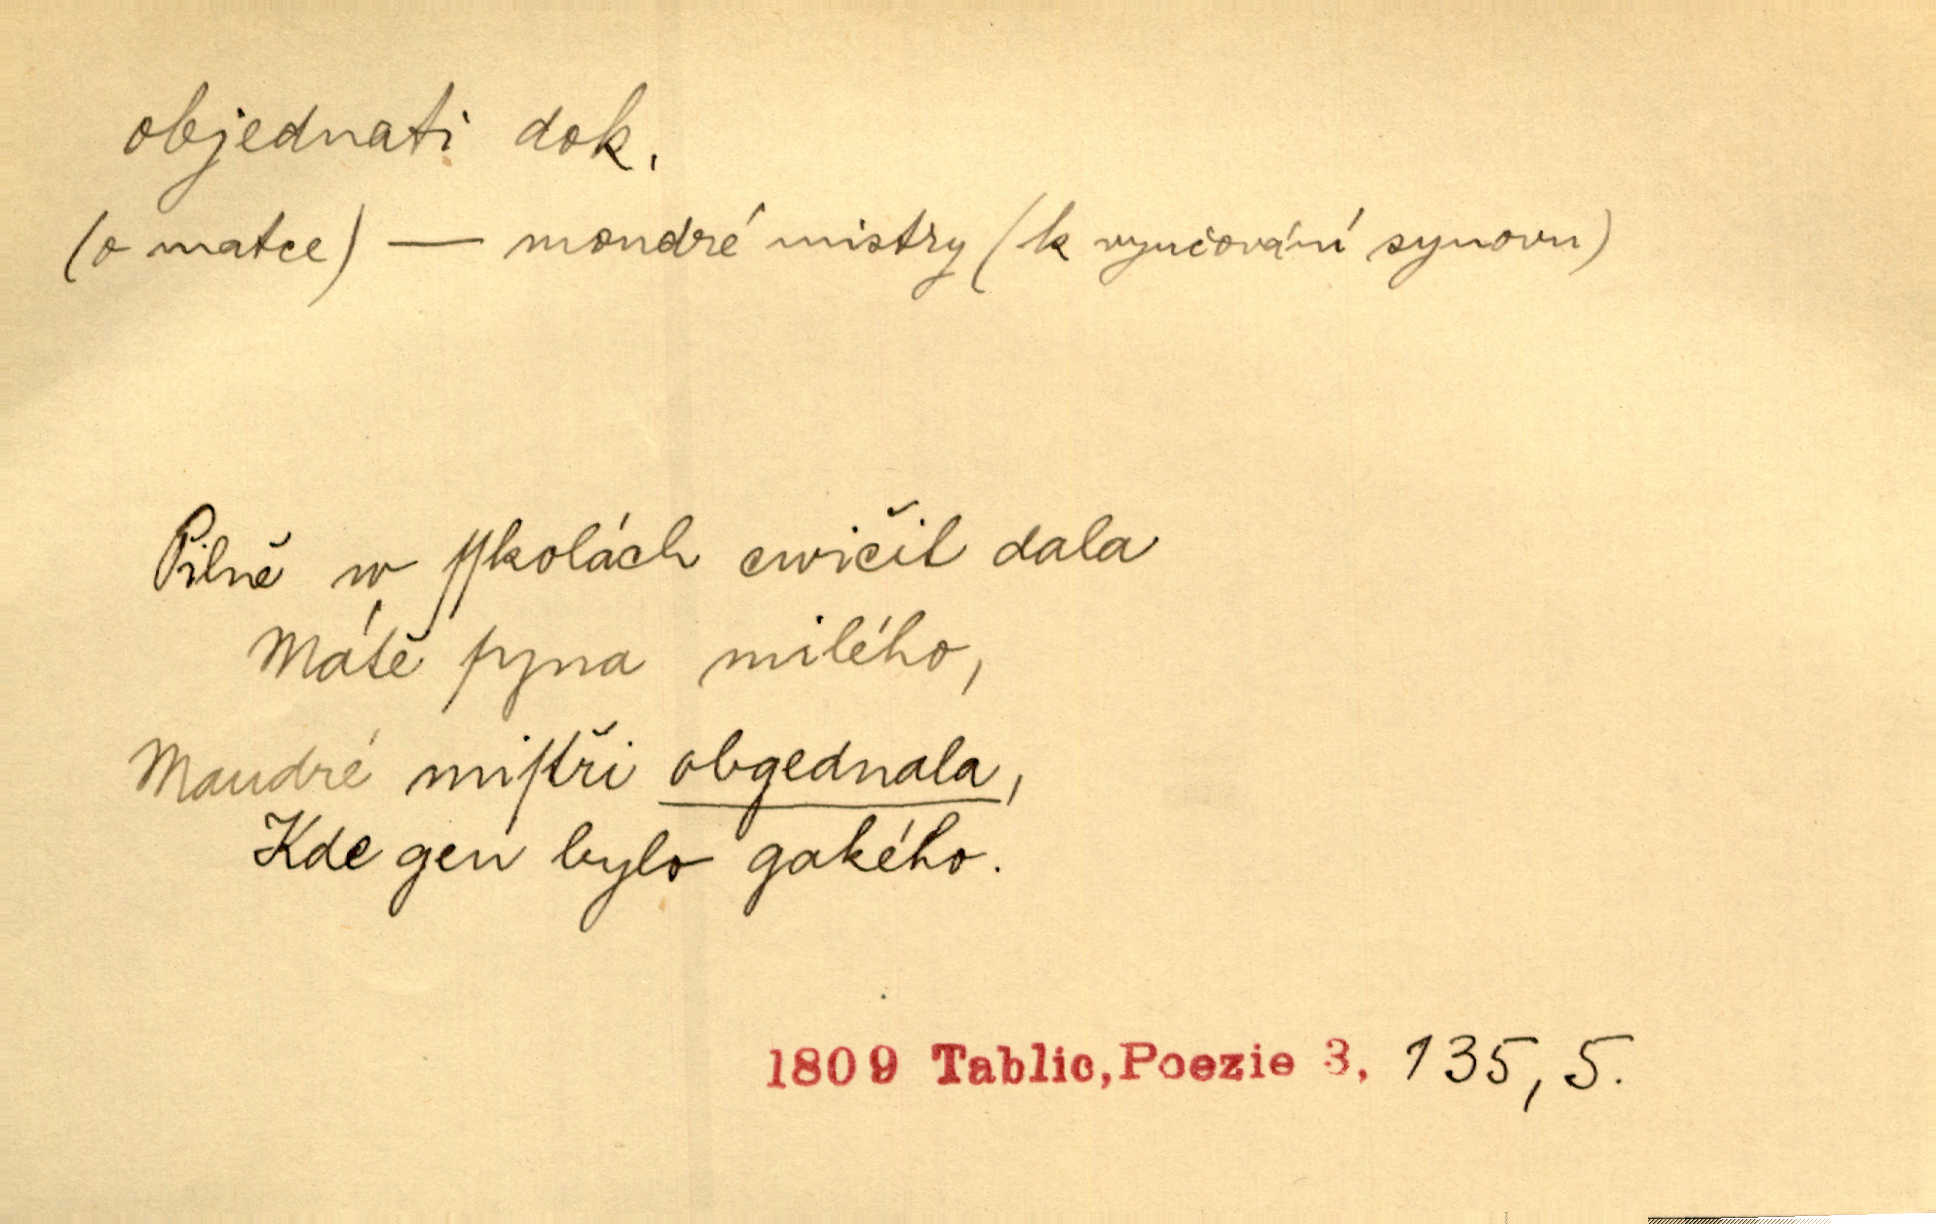 objednati dok.
(o matce) — moudré mistry (k vyučování synovu)
Pilně w ſſkolách cwičit dala
Mátě ſyna milého,
Maudré miſtři obgednala,
Kde gen bylo gakého.
1809 Tablic, Poezie 3, 135, 5.